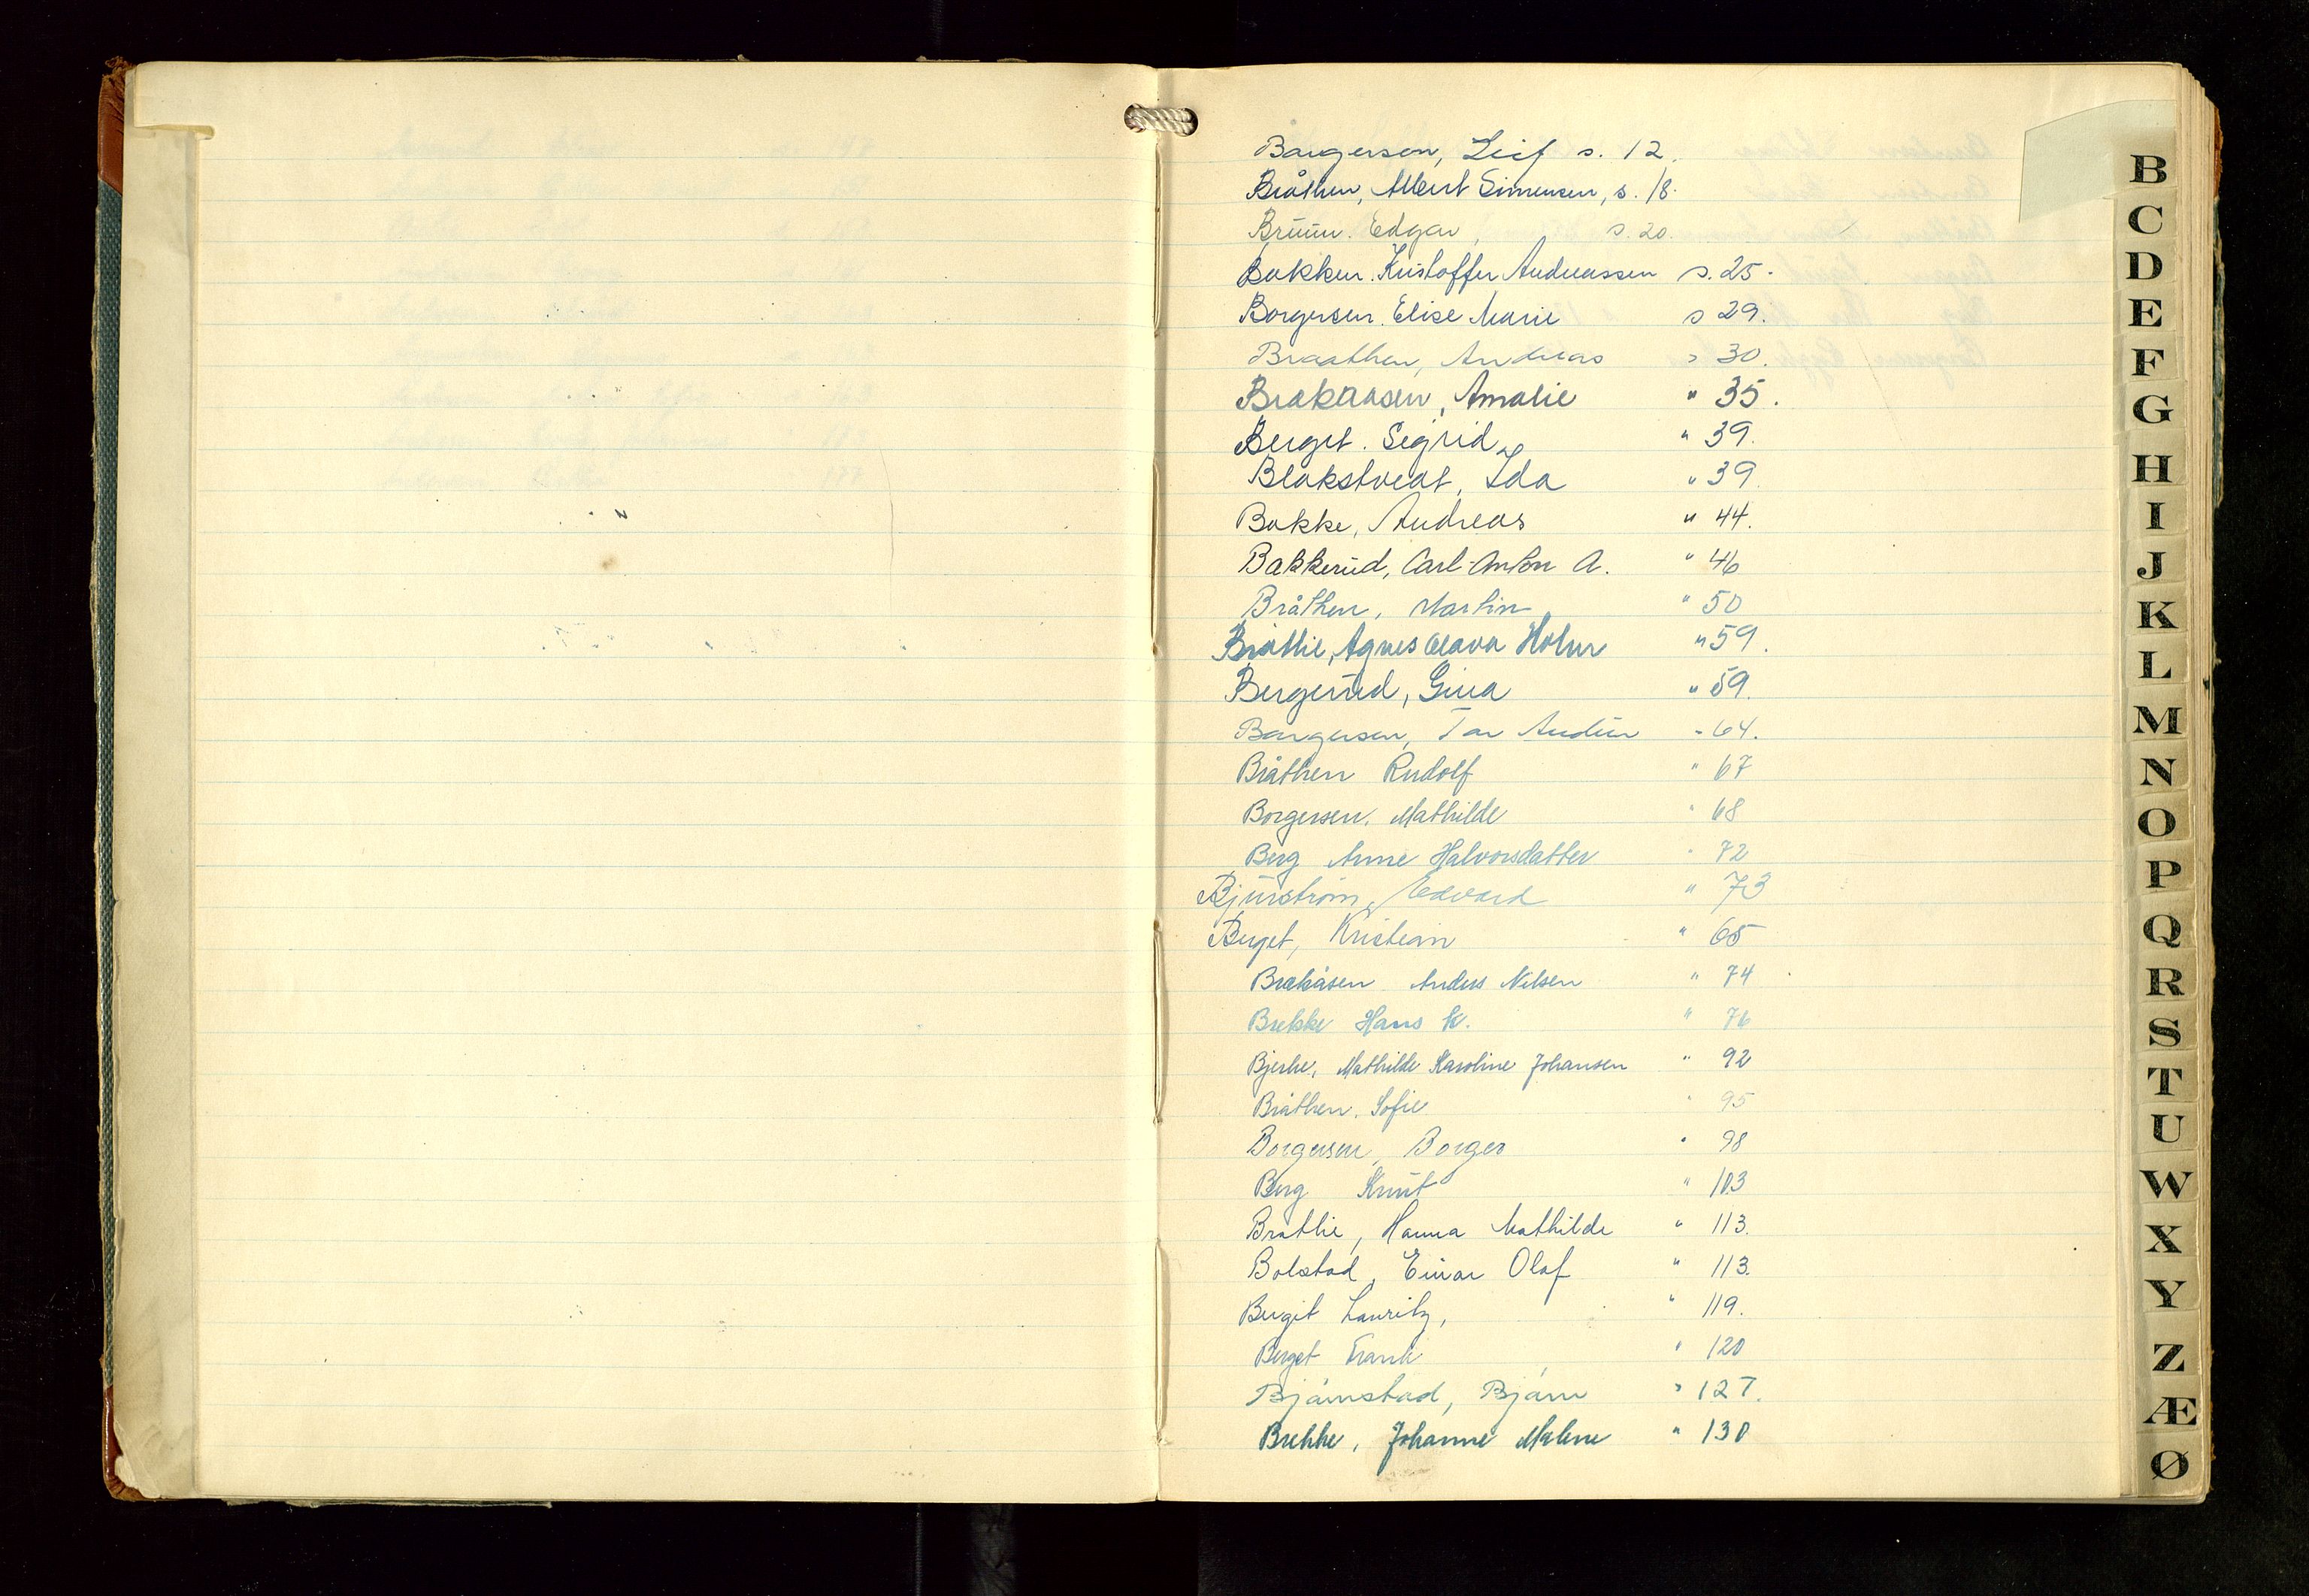 Borgersen, Leif s. 12.
Bråthen, Albert Simensen, s. 18.
Bruun. Edgar, s. 20.
Bakken. Kristoffer Andreassen s. 25.
Borgersen. Elise Marie s 29.
Braathen, Andreas s 30.
Brekaasen, Amalie " 35.
Berget. Sigrid " 39.
Blakstvedt, Ida " 39.
Bakke, Andreas " 44.
Bakkerud, Carl-Anton A. " 46
Bråthen, Martin " 50
Bråthie, Agnes Olava Holm " 59.
Bergerud, Gina " 59.
Borgersen, Tor Audun " 64.
Bråthen Rudolf " 67
Borgersen. Mathilde " 68
Berg Anne Halvorsdatter " 72
Bjurstrøm, Edvard " 73
Berget, Kristian " 65
Brekåsen Anders Nilsen " 74
Brekke Hans K. " 76
Bjerke, Mathilde Karoline Johansen " 92
Bråthen. Sofie " 95
Borgersen, Borger " 98
Berg Knut " 103
Brathie, Hanna Mathilde " 113.
Bolstad, Einar Olaf " 113.
Bergit Lauritz, " 119.
Berget Frank " 120
Bjørnstad, Bjørn " 127.
Brekke, Johanne Malene " 130
B
C
D
E
F
G
H
I
J
K
L
M
N
O
P
Q
R
S
T
U
W
X
Y
Z
Æ
Ø